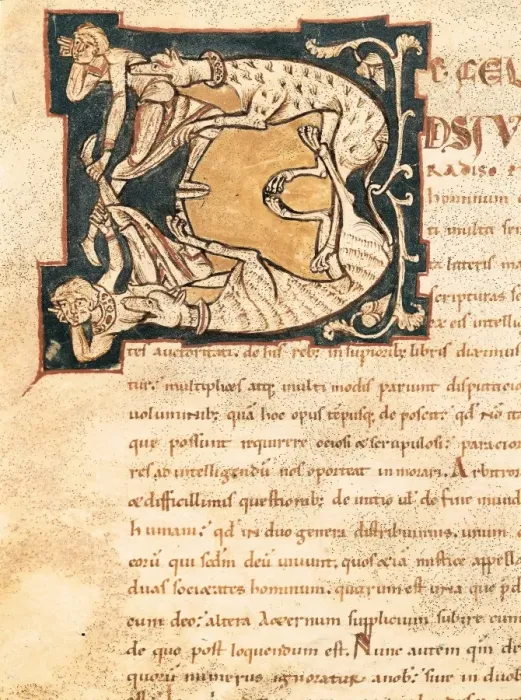 D
E FEL
RADISO
hominum
ti multa sen
ta litteris m
scripturas s
ex eis intelle
tes auctoritati. de his reb; in supiorib; libris diximus
tur. multiplices atq; multi modis pariunt disputatio
voluminib; quā hoc opus tēpusq; deposcit. qd nō
que possunt requirere ociosi & scrupulosi. paracior
res ad intelligendū nos oporteat inmorari. Arbitror
& difficillimis questionib; de initio ul de fine mund
humani. qd in duo genera distribuimus. unum
eorū qui scdm deū uiuunt. quos & iā mistice appell
duas societates hominum. quarum est una que pd
cum deo. altera &ernum supplicium subire cum
de quo post loquendum est. Nunc autem qm de
quorū numerus ignoratur a nob. siue in duob